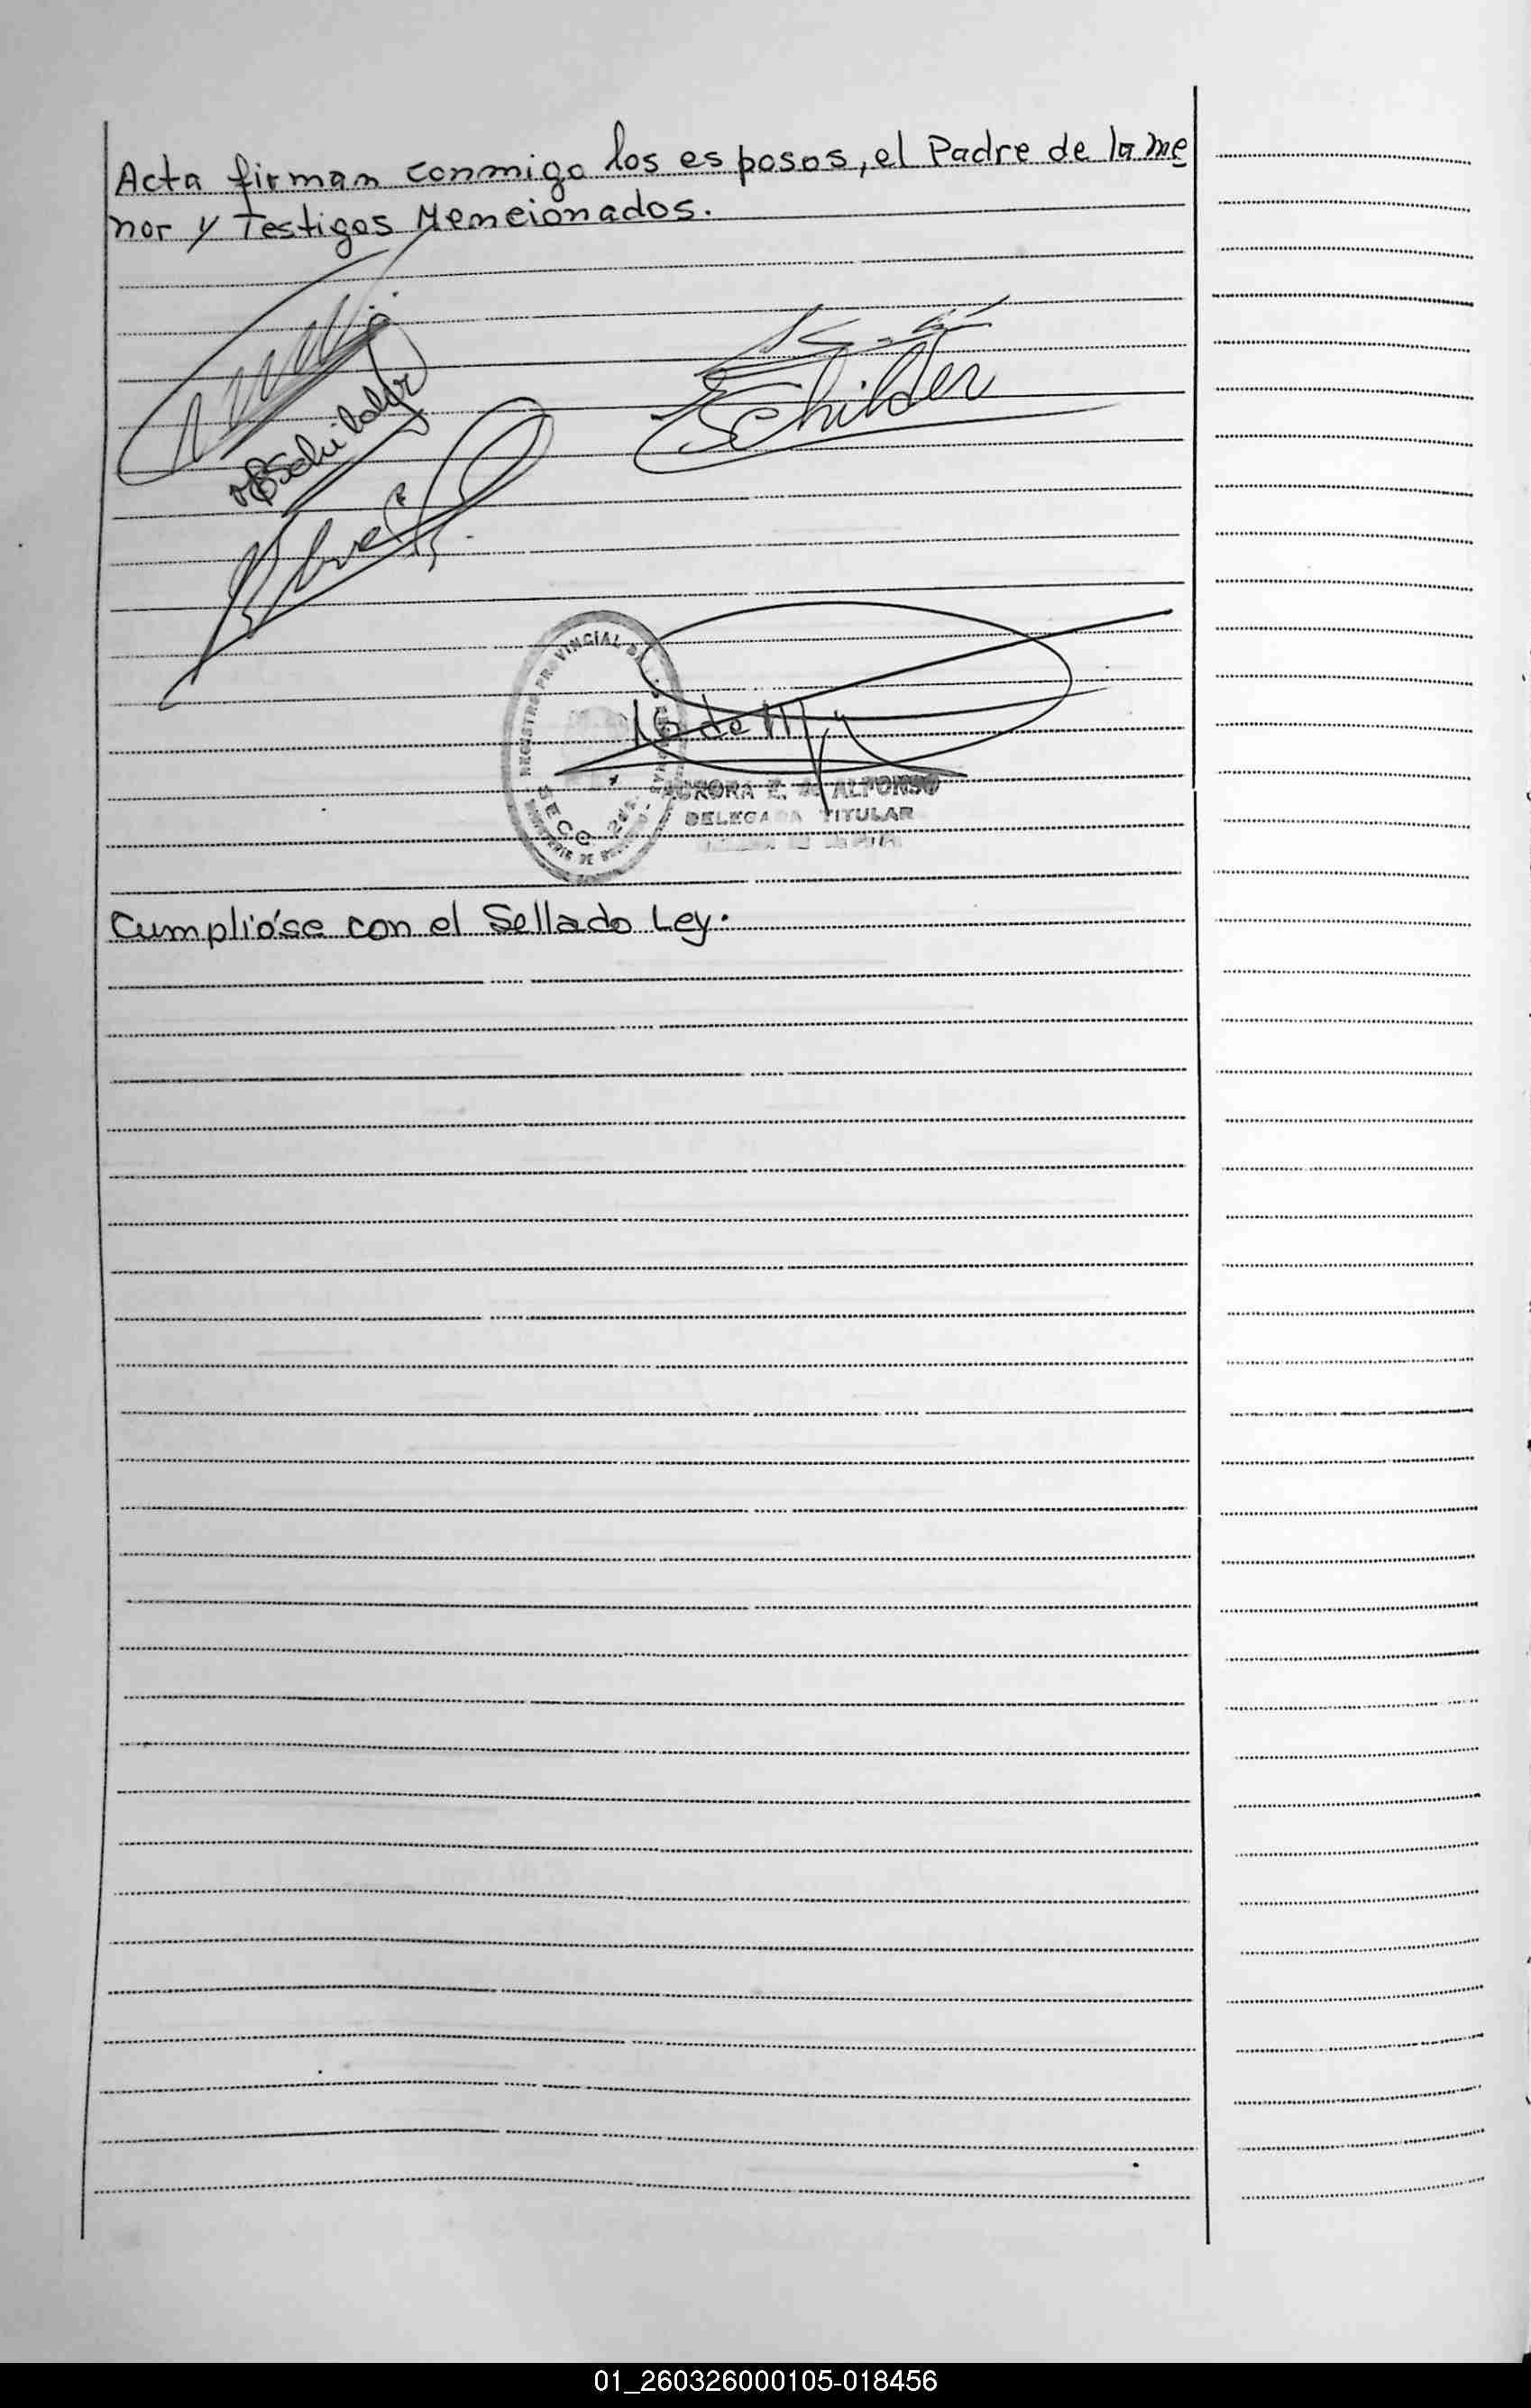 Acta firman conmigo los esposos, el Padre de la me
nor y Testigos Mencionados.
Schilder
REGISTRO PROVINCIAL DE LAS PERSONAS
SECC.
AURORA E. de ALFONSO
DELEGADA TITULAR
Cumplióse con el Sellado Ley.
01_260326000105-018456